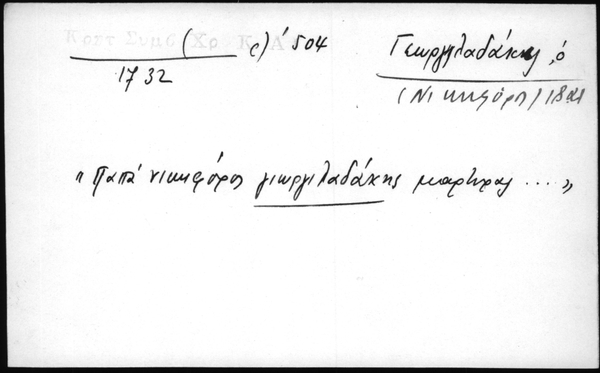 Κρητ Συμβ Χρ Κ. Α΄ ( c) 504
1732
Γεωργιλαδάκης, ὁ
(Νικηφόρος) 1821
"Παπά νικηφόρος γιωργιλαδάκης μαρτηρας ...."